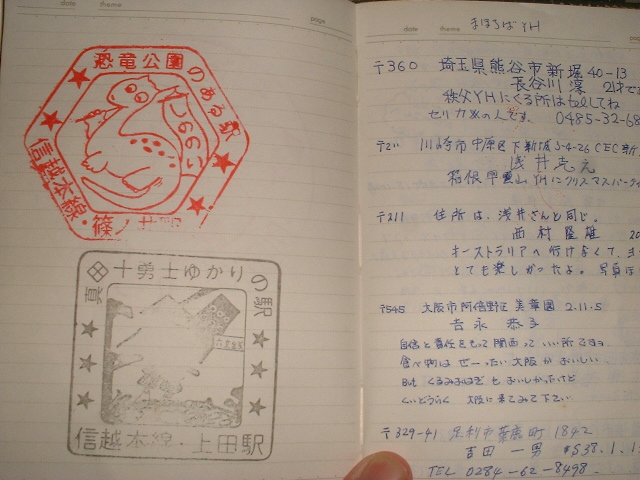 date theme page
恐竜公園のある駅
信越本線・篠ノ井駅
真田十勇士ゆかりの駅
信越本線・上田駅
date theme
まほろばYH
〒360 埼玉県熊谷市新堀40-13
長谷川 淳 21才です
秩父YHにくる所はtelしてね
セリカXXの人です。 0485-32-68
〒211 川崎市中原区下新城3-4-26 (CEC新
浅井克え
箱根早雲山YHにクリスマスパーテ
〒211 住所は、浅井さんと同じ。
西村 隆雄 20
オーストラリアへ行けなくて、ま
とても楽しかったよ。写真は
〒545 大阪市阿倍野区美章園 2.11.5
吉永 恭子
自信と責任をもって関西っていい所ですヨ。
食べ物はぜーったい大阪がおいしい。
But くるみおはぎもおいしかったけど
くいどうらく 大阪に来てみて下さい
〒329-41 足利市葉鹿町 1842
吉田 一男 S38.1.1
TEL 0284-62-8498.